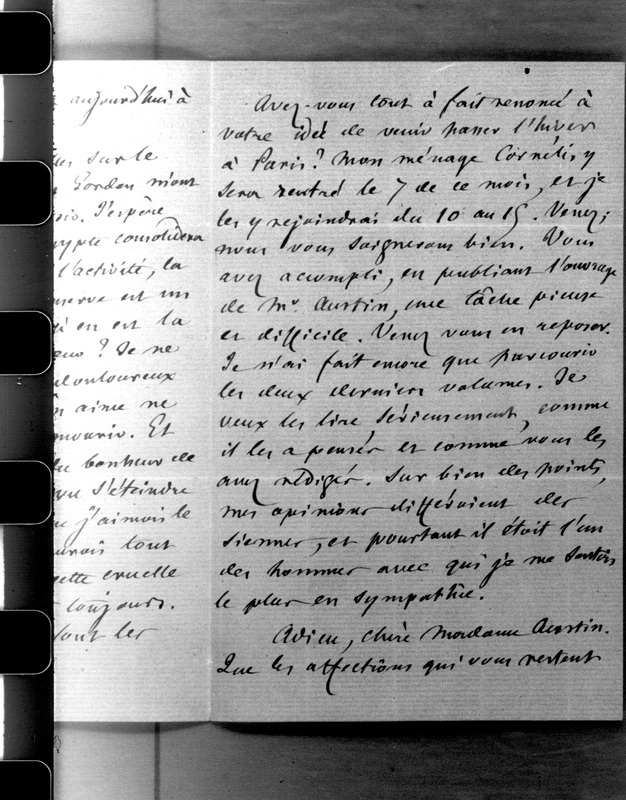 aujourd'hui à
sur le
Gordon m'ont
J'espère
consolidera
l'activité, la
est un
en est la
? Je ne
douloureux
aime ne
mourir. Et
bonheur de
s'éteindre
j'aimois le
tout
cruelle
toujours.
les
Avez-vous tout à fait renoncé à
votre idée de venir passer l'hiver
à Paris? Mon ménage Cornélis y
sera rentré le 7 de ce mois, et je
les y rejoindrai du 10 au 15. Venez;
nous vous soignerons bien. Vous
avez accompli, en publiant l'ouvrage
de Mr. Austin, une tâche pieuse
et difficile. Venez vous en reposer.
Je n'ai fait encore que parcourir
les deux derniers volumes. Je
veux les lire sérieusement, comme
il les a pensés et comme vous les
avez rédigés. Sur bien des points,
mes opinions différoient des
siennes, et pourtant il étoit l'un
des hommes avec qui je me sentois
le plus en sympathie.
Adieu, chère Madame Austin.
Que les affections qui vous restent